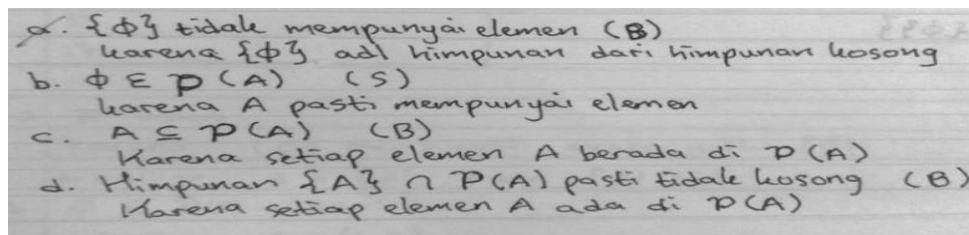 a. {Φ} tidak mempunyai elemen (B)
karena {Φ} adl himpunan dari himpunan kosong
b. Φ ∈ P(A) (S)
karena A pasti mempunyai elemen
c. A ⊆ P(A) (B)
Karena setiap elemen A berada di P(A)
d. Himpunan {A} ∩ P(A) pasti tidak kosong (B)
Karena setiap elemen A ada di P(A)